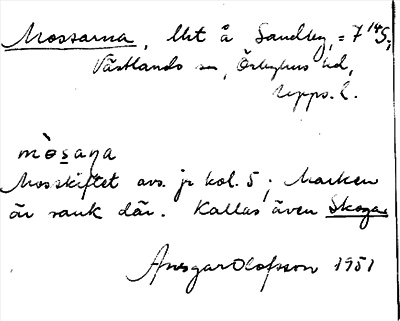 Mossarna, Ukt å Sandby, = 7 14S;
Västlands sn, Örbyhus hd,
Upps. l.
mòsaṇa
Mosskiftet avs. jr kol. 5; Marken
är sank där. Kallas även Skogar
Ansgar Olofsson 1951